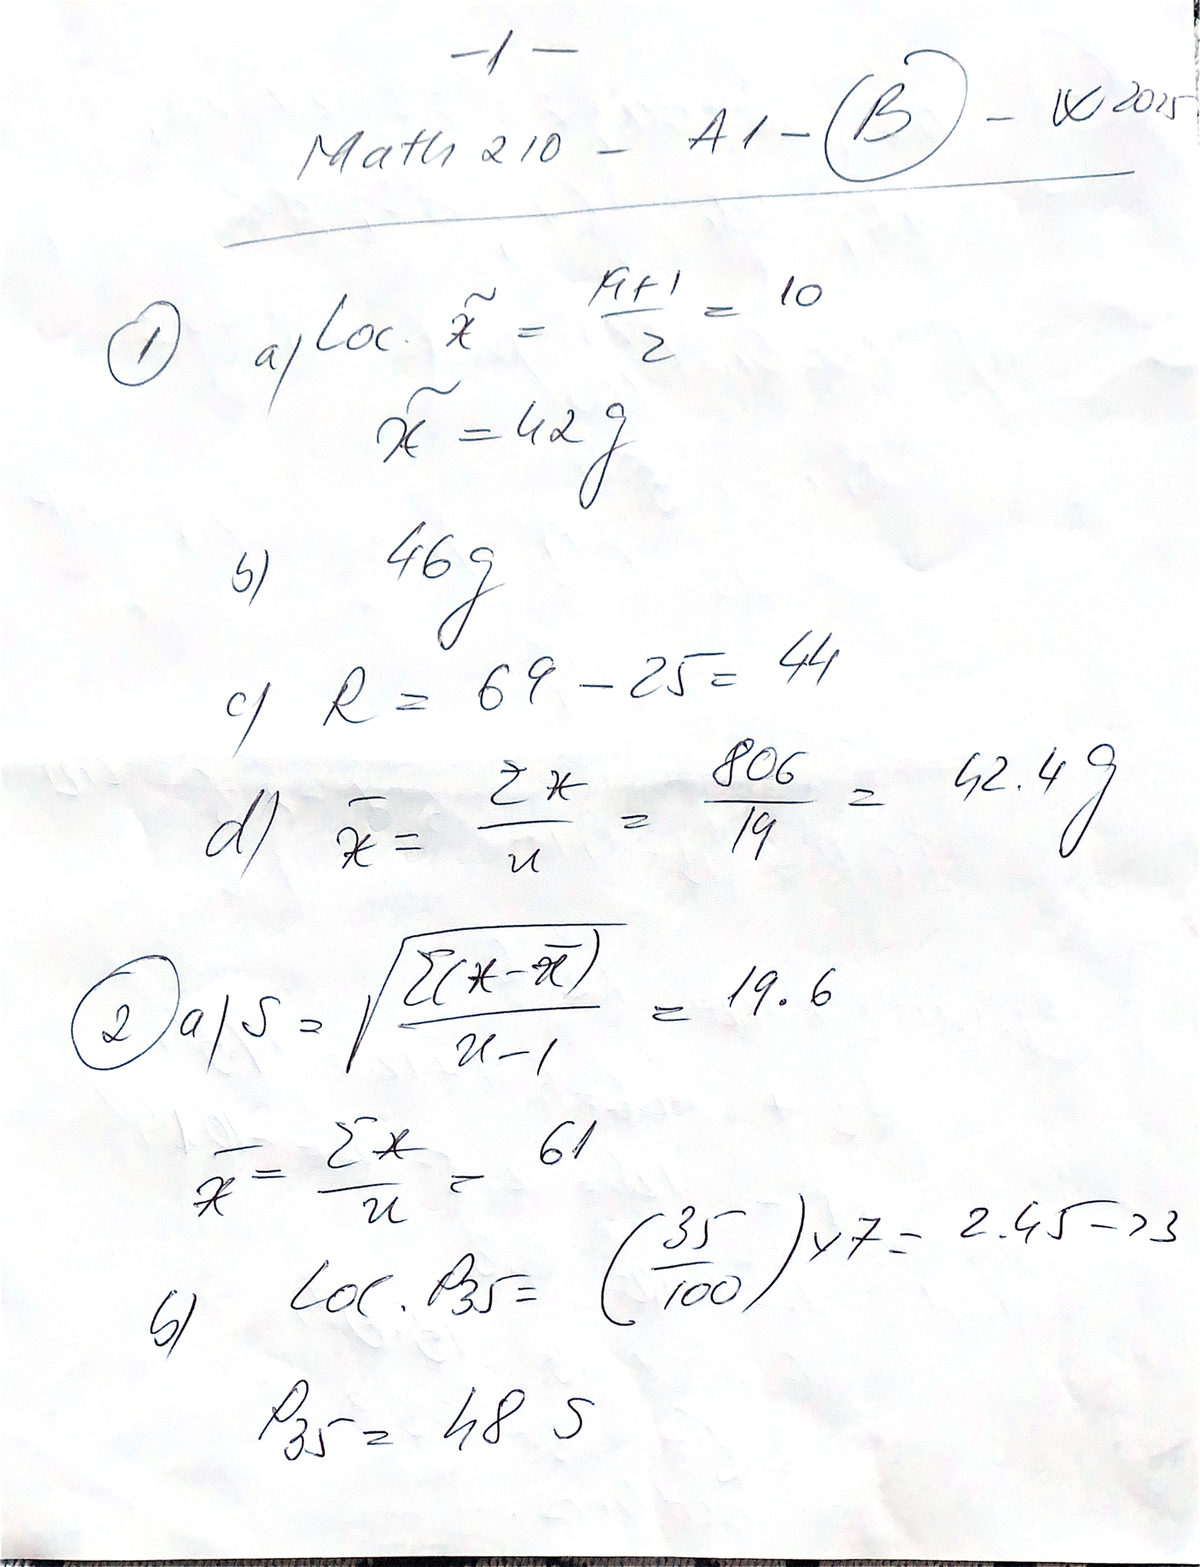 -1-
Math 210 - A1 - (B) - IX 2025
① a) Loc. x̃ = (19+1)/2 = 10
x̃ = 42 g
b) 46 g
c) R = 69 - 25 = 44
d) x̄ = Σx/n = 806/19 = 42.4 g
② a) S = √(Σ(x-x̄)/(n-1)) = 19.6
x̄ = Σx/n = 61
b) Loc. P35 = (35/100) x 7 = 2.45 -> 3
P35 = 48 s